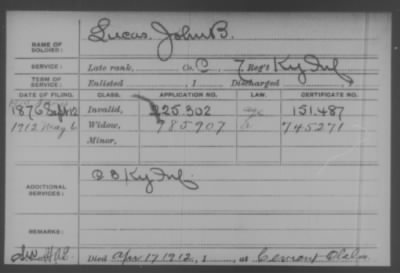 Lucas, John B.
NAME OF SOLDIER:
SERVICE: Late rank, Co. C, 7 Reg't Ky Inf
TERM OF SERVICE: Enlisted , 1 Discharged , 1
DATE OF FILING. CLASS. APPLICATION NO. LAW. CERTIFICATE NO.
1876 Sept 12 Invalid, 225.302 151.487
1912 May 6 Widow, 985907 745271
Minor,
ADDITIONAL SERVICES: Ky Inf.
REMARKS:
Died Apr 17 1912, 1 , at Cement Okla